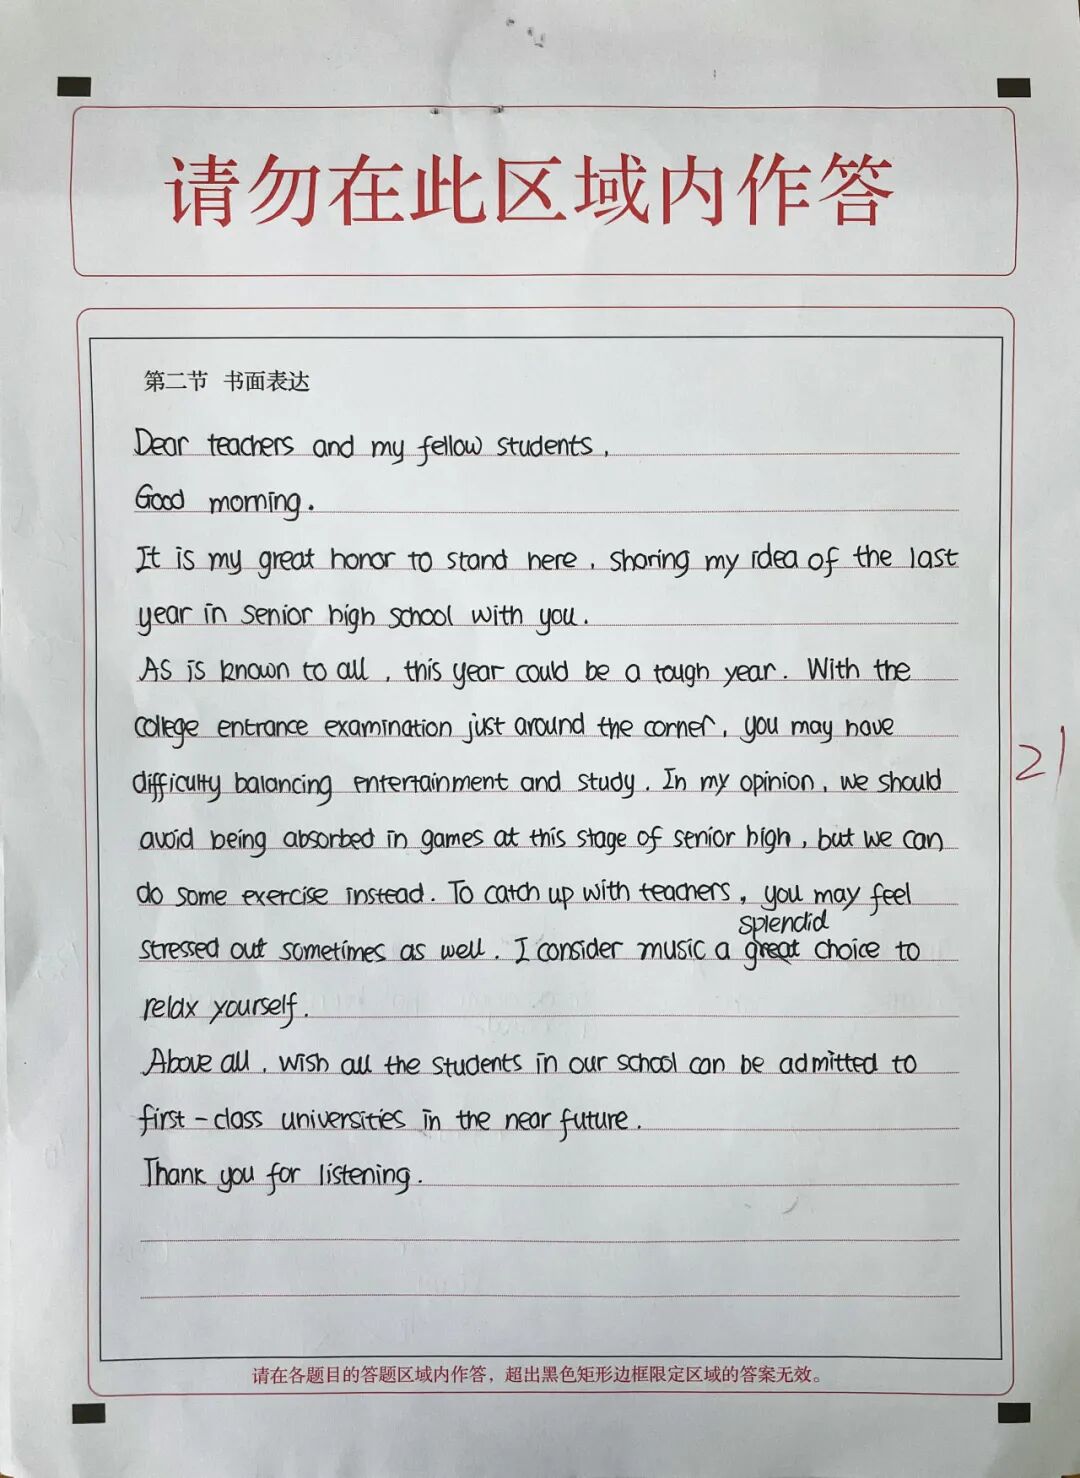 请勿在此区域内作答
第二节 书面表达
Dear teachers and my fellow students,
Good morning.
It is my great honor to stand here, sharing my idea of the last
year in senior high school with you.
As is known to all, this year could be a tough year. With the
college entrance examination just around the corner, you may have
difficulty balancing entertainment and study. In my opinion, we should
avoid being absorbed in games at this stage of senior high, but we can
do some exercise instead. To catch up with teachers, you may feel
splendid
stressed out sometimes as well. I consider music a great choice to
relax yourself.
Above all, wish all the students in our school can be admitted to
first-class universities in the near future.
Thank you for listening.
21
请在各题目的答题区域内作答，超出黑色矩形边框限定区域的答案无效。